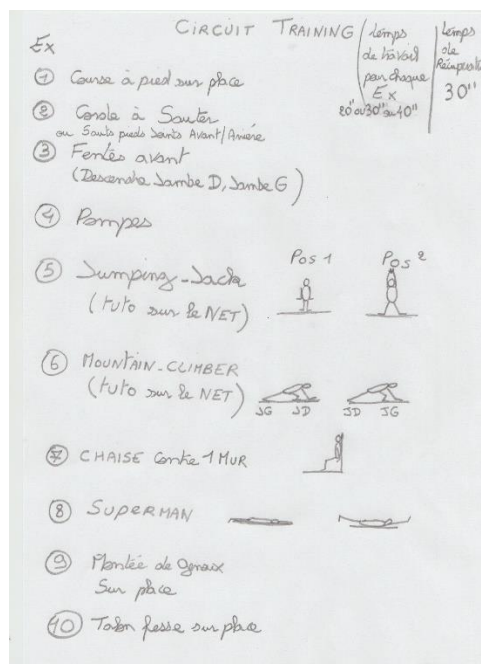 CIRCUIT TRAINING
temps
de travail
par chaque
Ex
20" ou 30" ou 40"
temps
de
30"
Ex
1 Course à pied sur place
2 Corde à Sauter
ou Sauts pieds joints Avant/Arrière
3 Fentes avant
(Descendre Jambe D, Jambe G)
4 Pompes
5 Jumping-Jack
(tuto sur le NET)
Pos 1
Pos 2
6 MOUNTAIN-CLIMBER
(tuto sur le NET)
JG JD JD JG
7 CHAISE contre 1 MUR
8 SUPERMAN
9 Montée de Genoux
Sur place
10 Talon fesse sur place